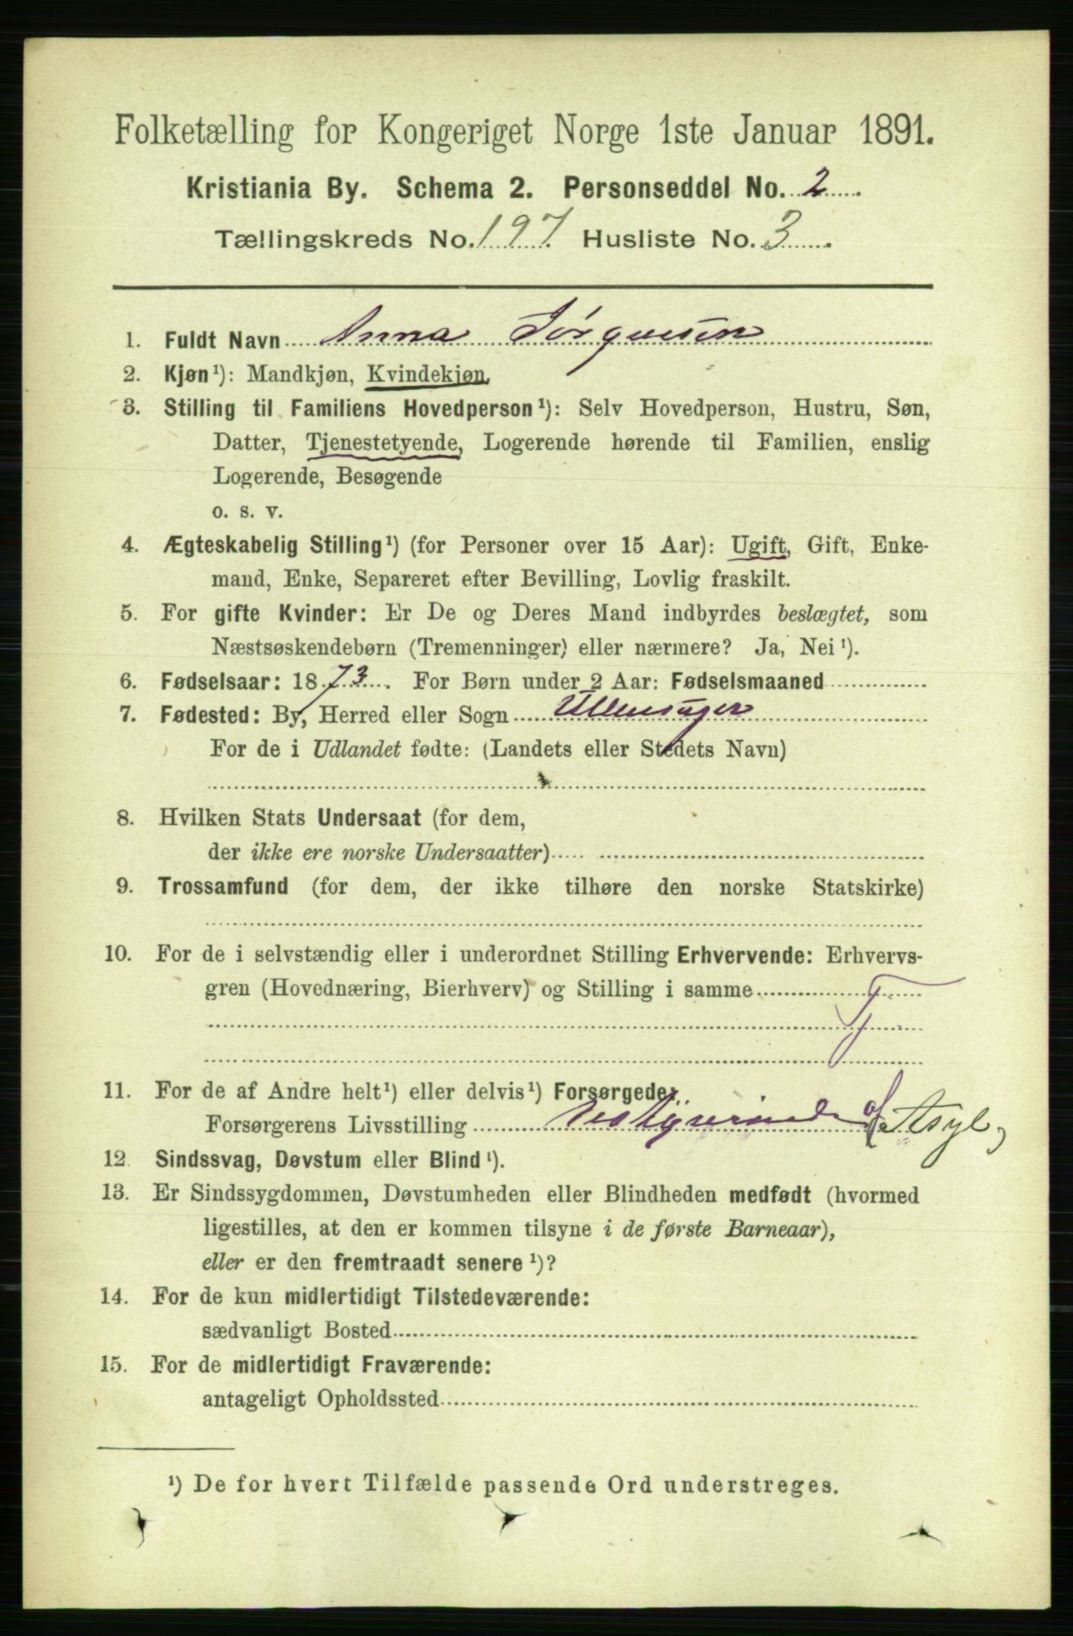 Folketælling for Kongeriget Norge 1ste Januar 1891.
Kristiania By. Schema 2. Personseddel No. 2
Tællingskreds No. 197. Husliste No. 3
1. Fuldt Navn Anna Jørgensen
2. Kjøn¹): Mandkjøn, Kvindekjøn.
3. Stilling til Familiens Hovedperson¹): Selv Hovedperson, Hustru, Søn,
Datter, Tjenestetyende, Logerende hørende til Familien, enslig
Logerende, Besøgende
o. s. v.
4. Ægteskabelig Stilling¹) (for Personer over 15 Aar): Ugift, Gift, Enke-
mand, Enke, Separeret efter Bevilling, Lovlig fraskilt.
5. For gifte Kvinder: Er De og Deres Mand indbyrdes beslægtet, som
Næstsøskendebørn (Tremenninger) eller nærmere? Ja, Nei¹).
6. Fødselsaar: 1873. For Børn under 2 Aar: Fødselsmaaned
7. Fødested: By, Herred eller Sogn Ullensager
For de i Udlandet fødte: (Landets eller Stedets Navn)
8. Hvilken Stats Undersaat (for dem,
der ikke ere norske Undersaatter)
9. Trossamfund (for dem, der ikke tilhøre den norske Statskirke)
10. For de i selvstændig eller i underordnet Stilling Erhvervende: Erhvervs-
gren (Hovednæring, Bierhverv) og Stilling i samme
Tj
11. For de af Andre helt¹) eller delvis¹) Forsørgede:
Forsørgerens Livsstilling Bestyrerinde af Asyl
12 Sindssvag, Døvstum eller Blind¹).
13. Er Sindssygdommen, Døvstumheden eller Blindheden medfødt (hvormed
ligestilles, at den er kommen tilsyne i de første Barneaar),
eller er den fremtraadt senere¹)?
14. For de kun midlertidigt Tilstedeværende:
sædvanligt Bosted
15. For de midlertidigt Fraværende:
antageligt Opholdssted
¹) De for hvert Tilfælde passende Ord understreges.